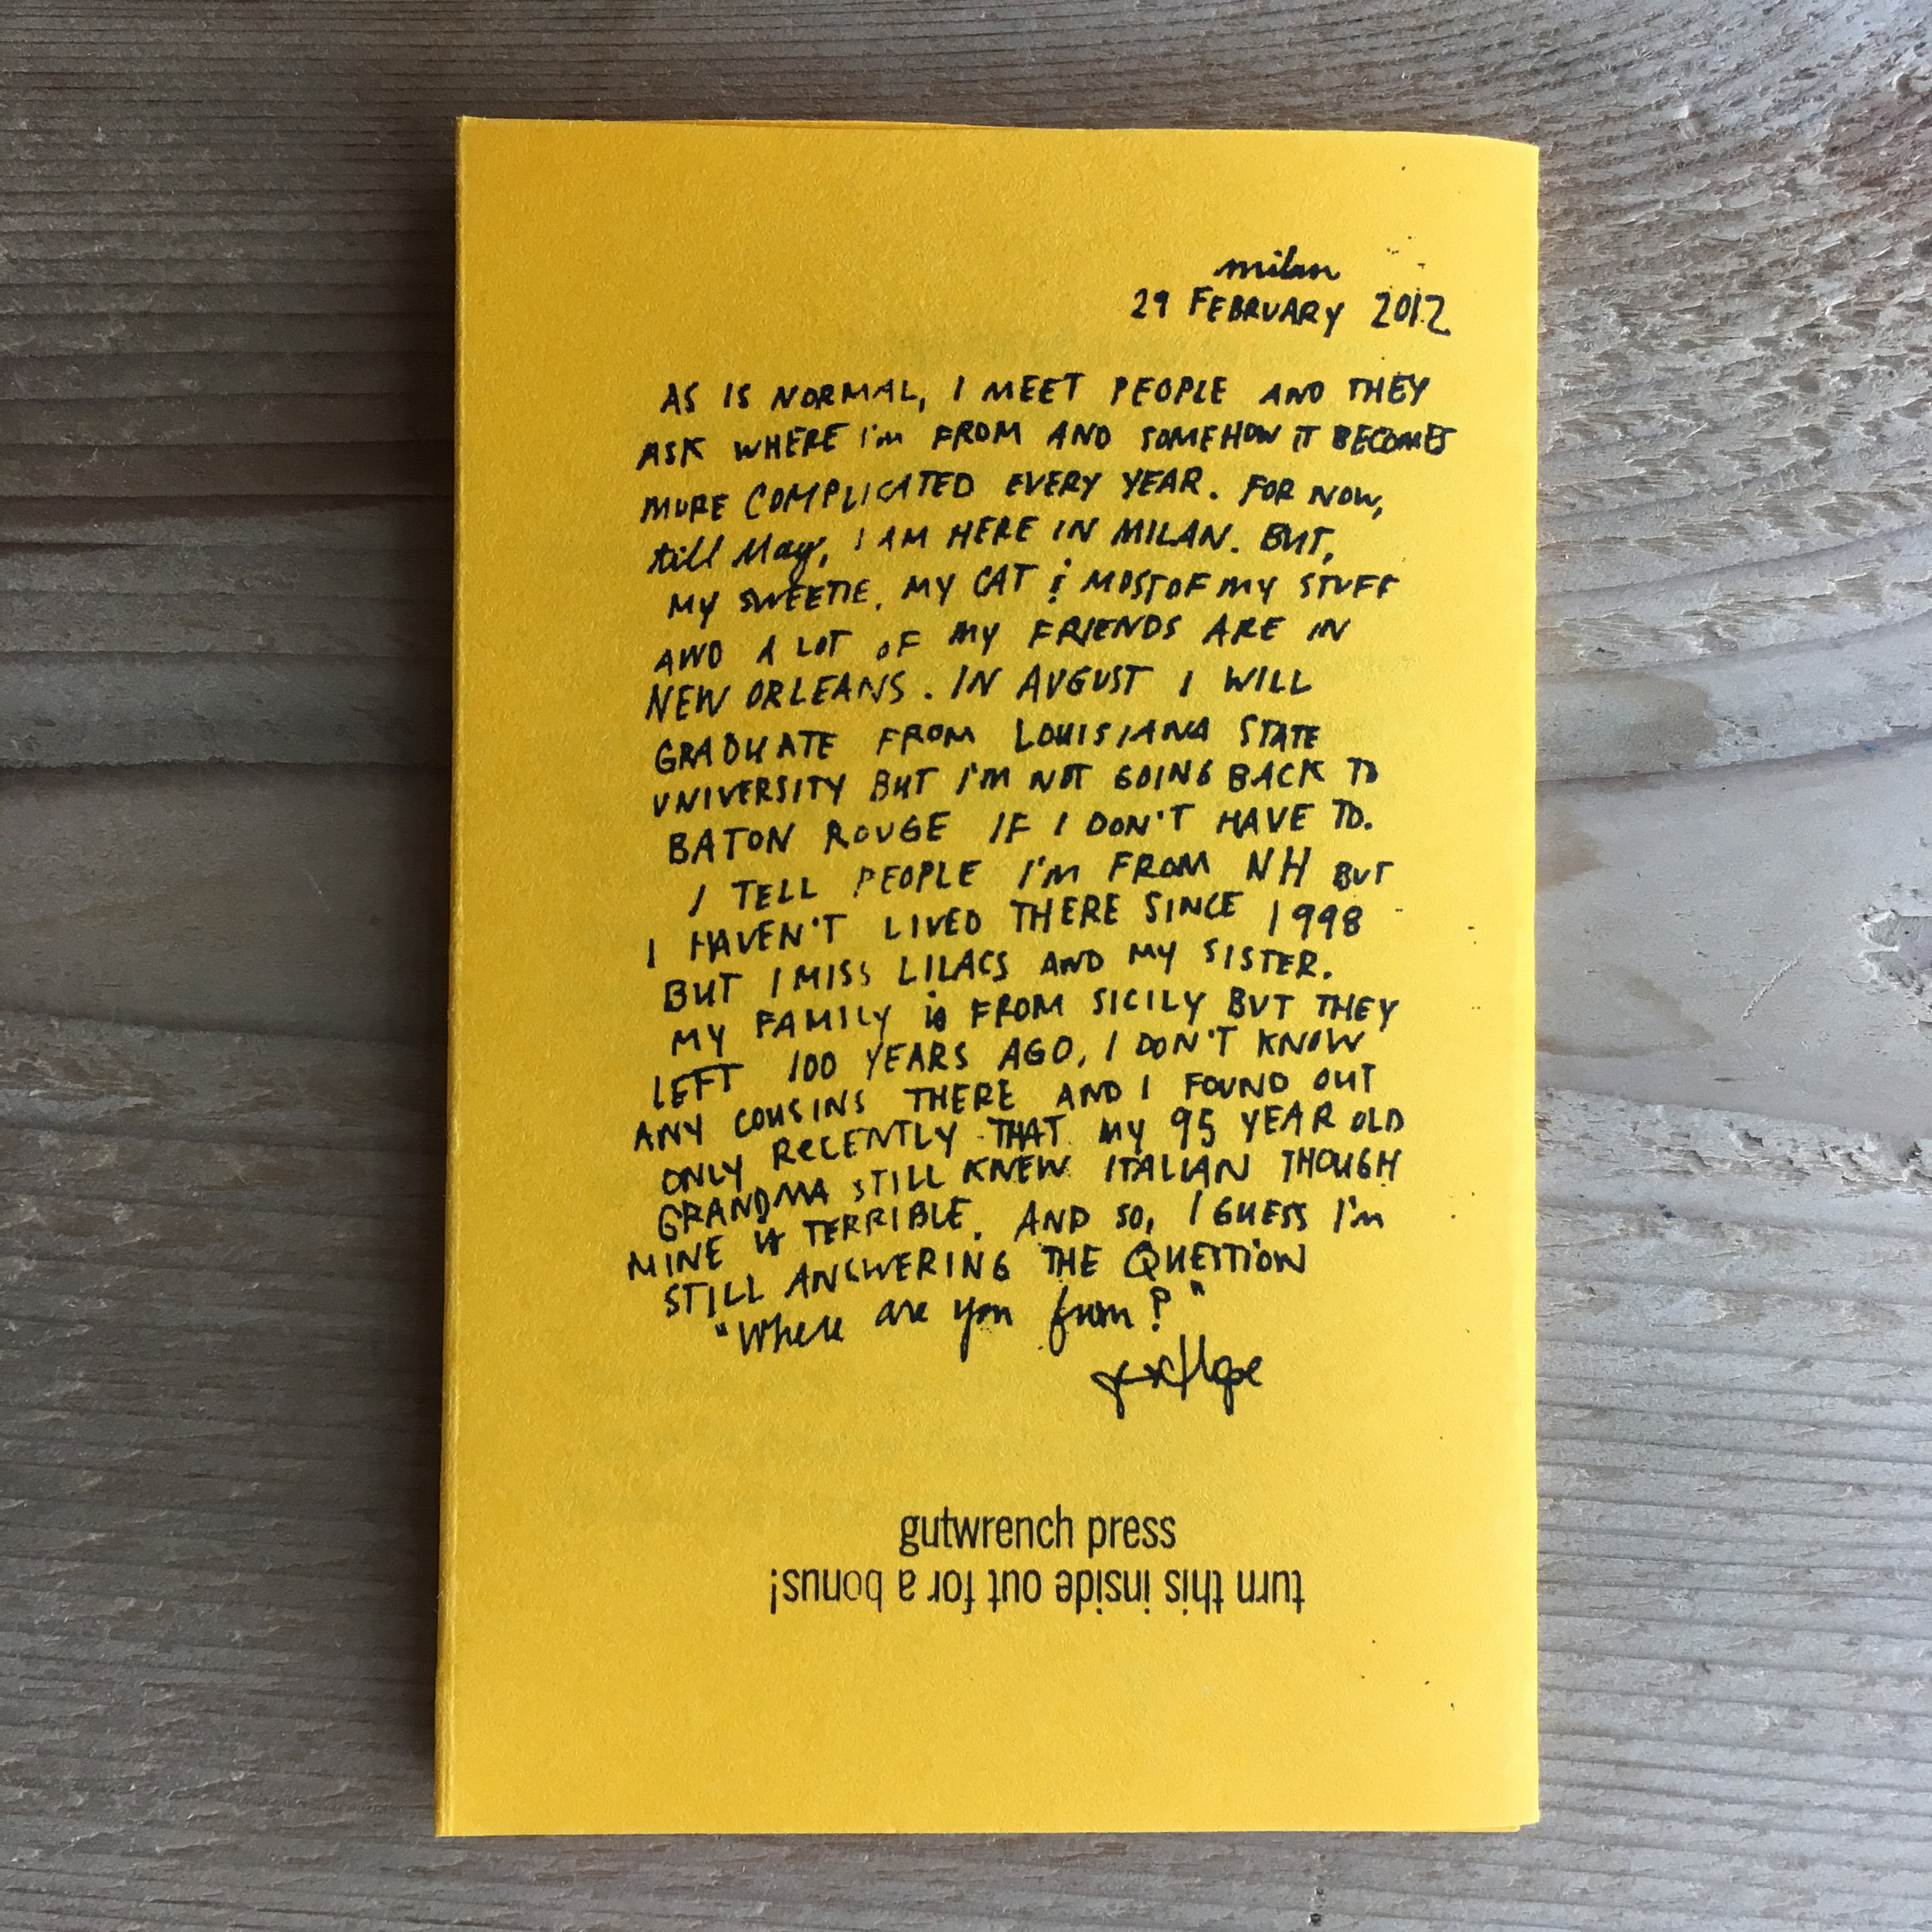 milan
29 FEBRUARY 2012
AS IS NORMAL, I MEET PEOPLE AND THEY
ASK WHERE I'm FROM AND SOMEHOW IT BECOMES
MORE COMPLICATED EVERY YEAR. FOR NOW,
till May, I AM HERE IN MILAN. BUT,
MY SWEETIE, MY CAT & MOST OF MY STUFF
AND A LOT OF MY FRIENDS ARE IN
NEW ORLEANS. IN AUGUST I WILL
GRADUATE FROM LOUISIANA STATE
UNIVERSITY BUT I'M NOT GOING BACK TO
BATON ROUGE IF I DON'T HAVE TO.
I TELL PEOPLE I'M FROM NH BUT
I HAVEN'T LIVED THERE SINCE 1998
BUT I MISS LILACS AND MY SISTER.
MY FAMILY is FROM SICILY BUT THEY
LEFT 100 YEARS AGO, I DON'T KNOW
ANY COUSINS THERE AND I FOUND OUT
ONLY RECENTLY THAT MY 95 YEAR OLD
GRANDMA STILL KNEW ITALIAN THOUGH
MINE IS TERRIBLE. AND SO, I GUESS I'm
STILL ANSWERING THE QUESTION
"Where are you from?"
Hope
gutwrench press
turn this inside out for a bonus!